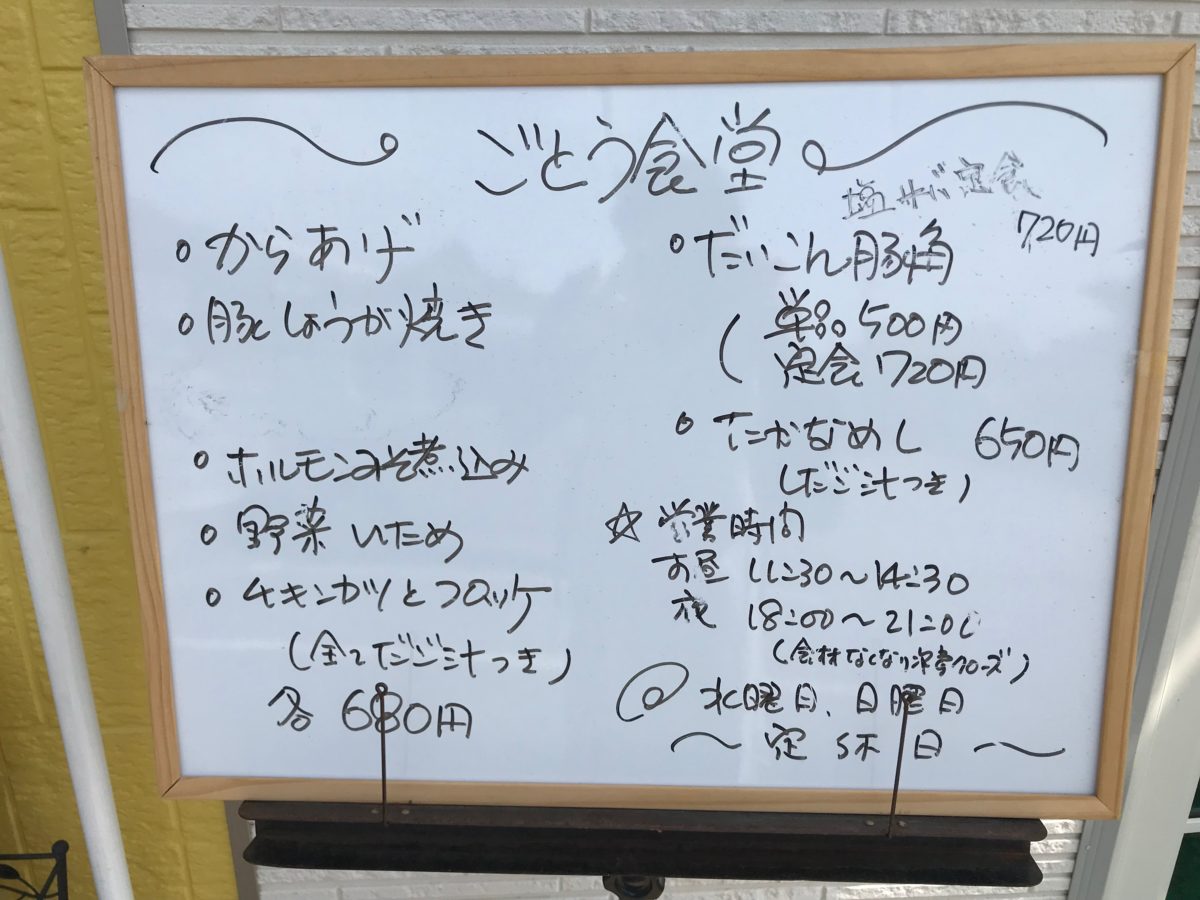 ごとう食堂
。からあげ
。豚しょうが焼き
。ホルモンみそ煮込み
。野菜いため
。チキンカツとコロッケ
(全てだご汁つき)
各 680円
塩サバ定食
720円
。だいこん豚角
( 単品 500円
定食 720円
。たかなめし 650円
(だご汁つき)
☆ 営業時間
お昼 11:30〜14:30
夜 18:00〜21:00
(食材なくなり次第クローズ)
水曜日、日曜日
〜 定休日 〜